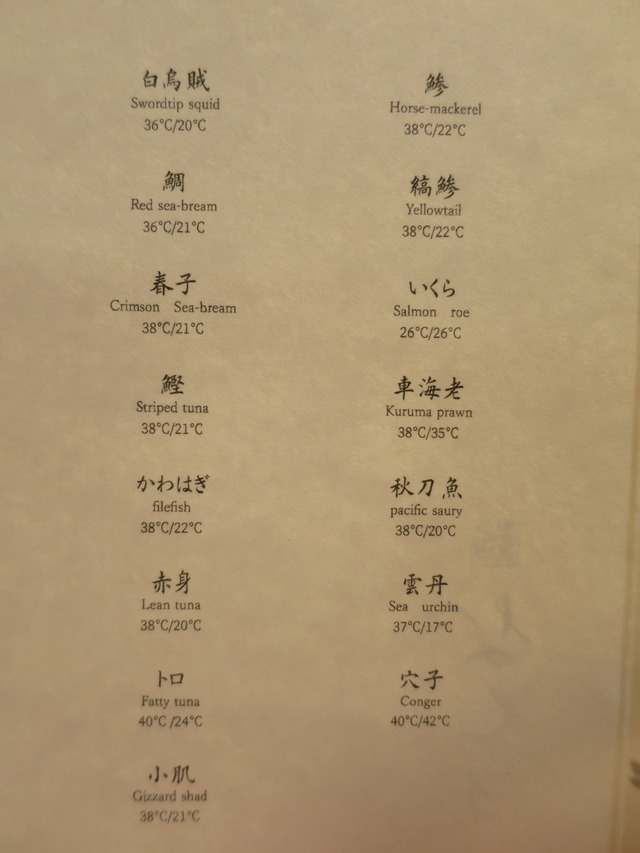 白烏賊
Swordtip squid
36°C/20°C
鯛
Red sea-bream
36°C/21°C
春子
Crimson Sea-bream
38°C/21°C
鰹
Striped tuna
38°C/21°C
かわはぎ
filefish
38°C/22°C
赤身
Lean tuna
38°C/20°C
トロ
Fatty tuna
40°C /24°C
小肌
Gizzard shad
38°C/21°C
鯵
Horse-mackerel
38°C/22°C
縞鯵
Yellowtail
38°C/22°C
いくら
Salmon roe
26°C/26°C
車海老
Kuruma prawn
38°C/35°C
秋刀魚
pacific saury
38°C/20°C
雲丹
Sea urchin
37°C/17°C
穴子
Conger
40°C/42°C